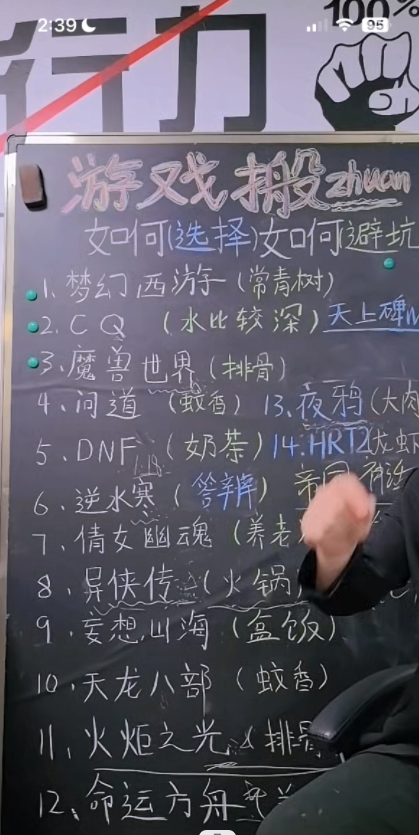 2:39 95
100%
行力
游戏搬zhuan
如何(选择)如何避坑
1、梦幻西游(常青树)
2.CQ (水比较深)天上碑
3、魔兽世界(排骨)
4、问道 (蚊香) 13、夜鸦(大肉
5、DNF (奶茶) 14.HRT2(龙虾
6、逆水寒(答辨) 帝国
7、倩女幽魂(养老
8、异侠传(火锅)
9.妄想山海(盒饭)
10.天龙八部(蚊香)
11、火炬之光 排骨
12、命运方舟